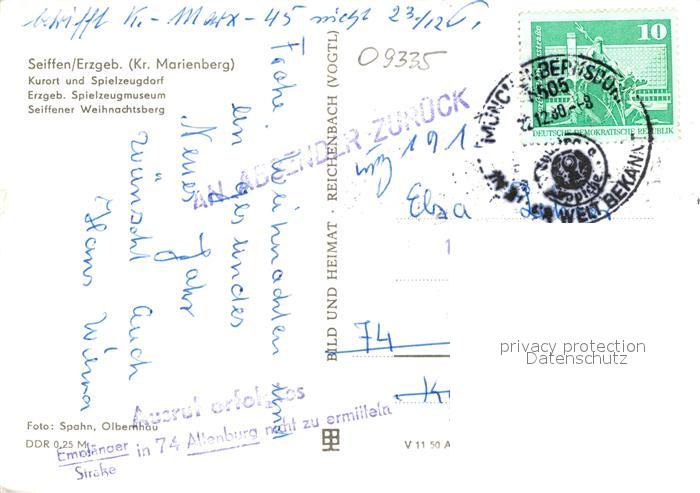 betrifft K.-Marx-45 nicht 23/12
Seiffen/Erzgeb. (Kr. Marienberg)
Kurort und Spielzeugdorf
Erzgeb. Spielzeugmuseum
Seiffener Weihnachtsberg
Frohe Weihnachten und
ein gesundes
Neues Jahr
wünscht Euch
Hans
AN ABSENDER ZURÜCK
Ausruf erfolglos
Empfänger in 74 Altenburg nicht zu ermitteln
Straße
Foto: Spahn, Olbernhau
DDR 0,25 M
BILD UND HEIMAT · REICHENBACH (VOGTL)
V 11 50 A
09335
191
Elsa
74
K
10
DEUTSCHE DEMOKRATISCHE REPUBLIK
MÜNCHENBERNSDORF
6505
22.12.80-8
WELTBEKANNT
privacy protection
Datenschutz